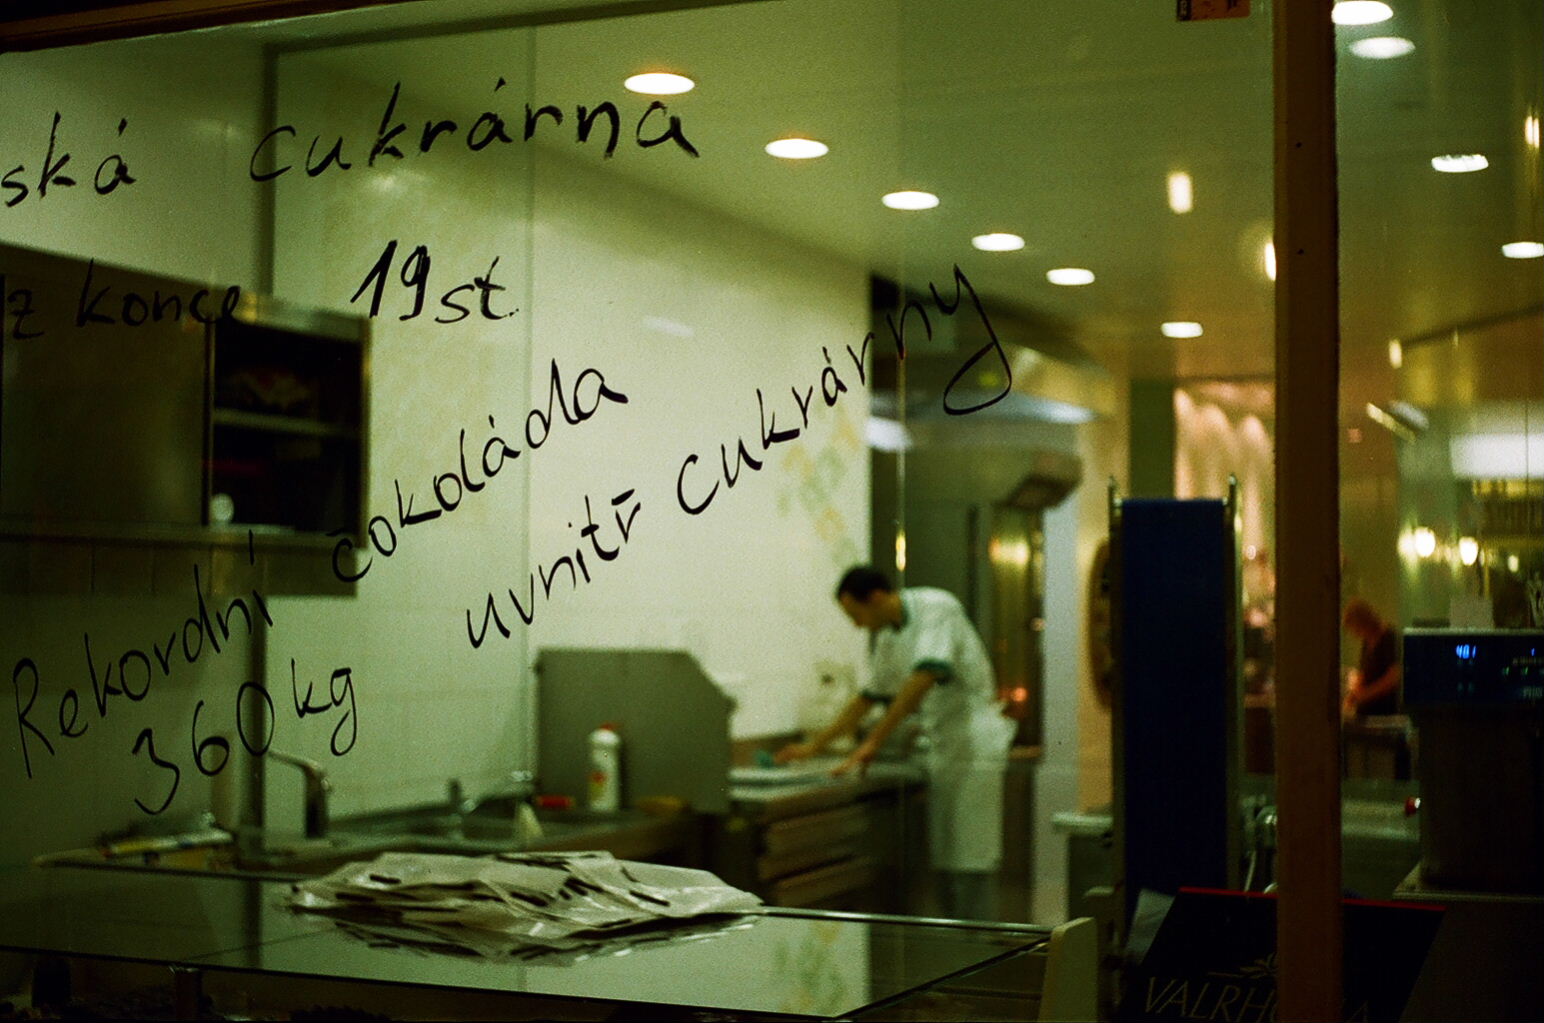 ská cukrárna
z konce 19st.
Rekordní čokoláda
360kg uvnitř cukrárny
VALRHONA